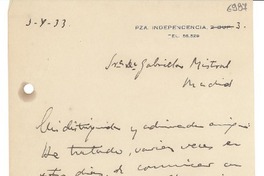 6987
3-4-33
PZA. INDEPENDENCIA, 3.
TEL.
Sra. Da. Gabriela Mistral
Madrid
Mi distinguida y admirada amiga:
He tratado, varias veces en
estos días, de comunicar con